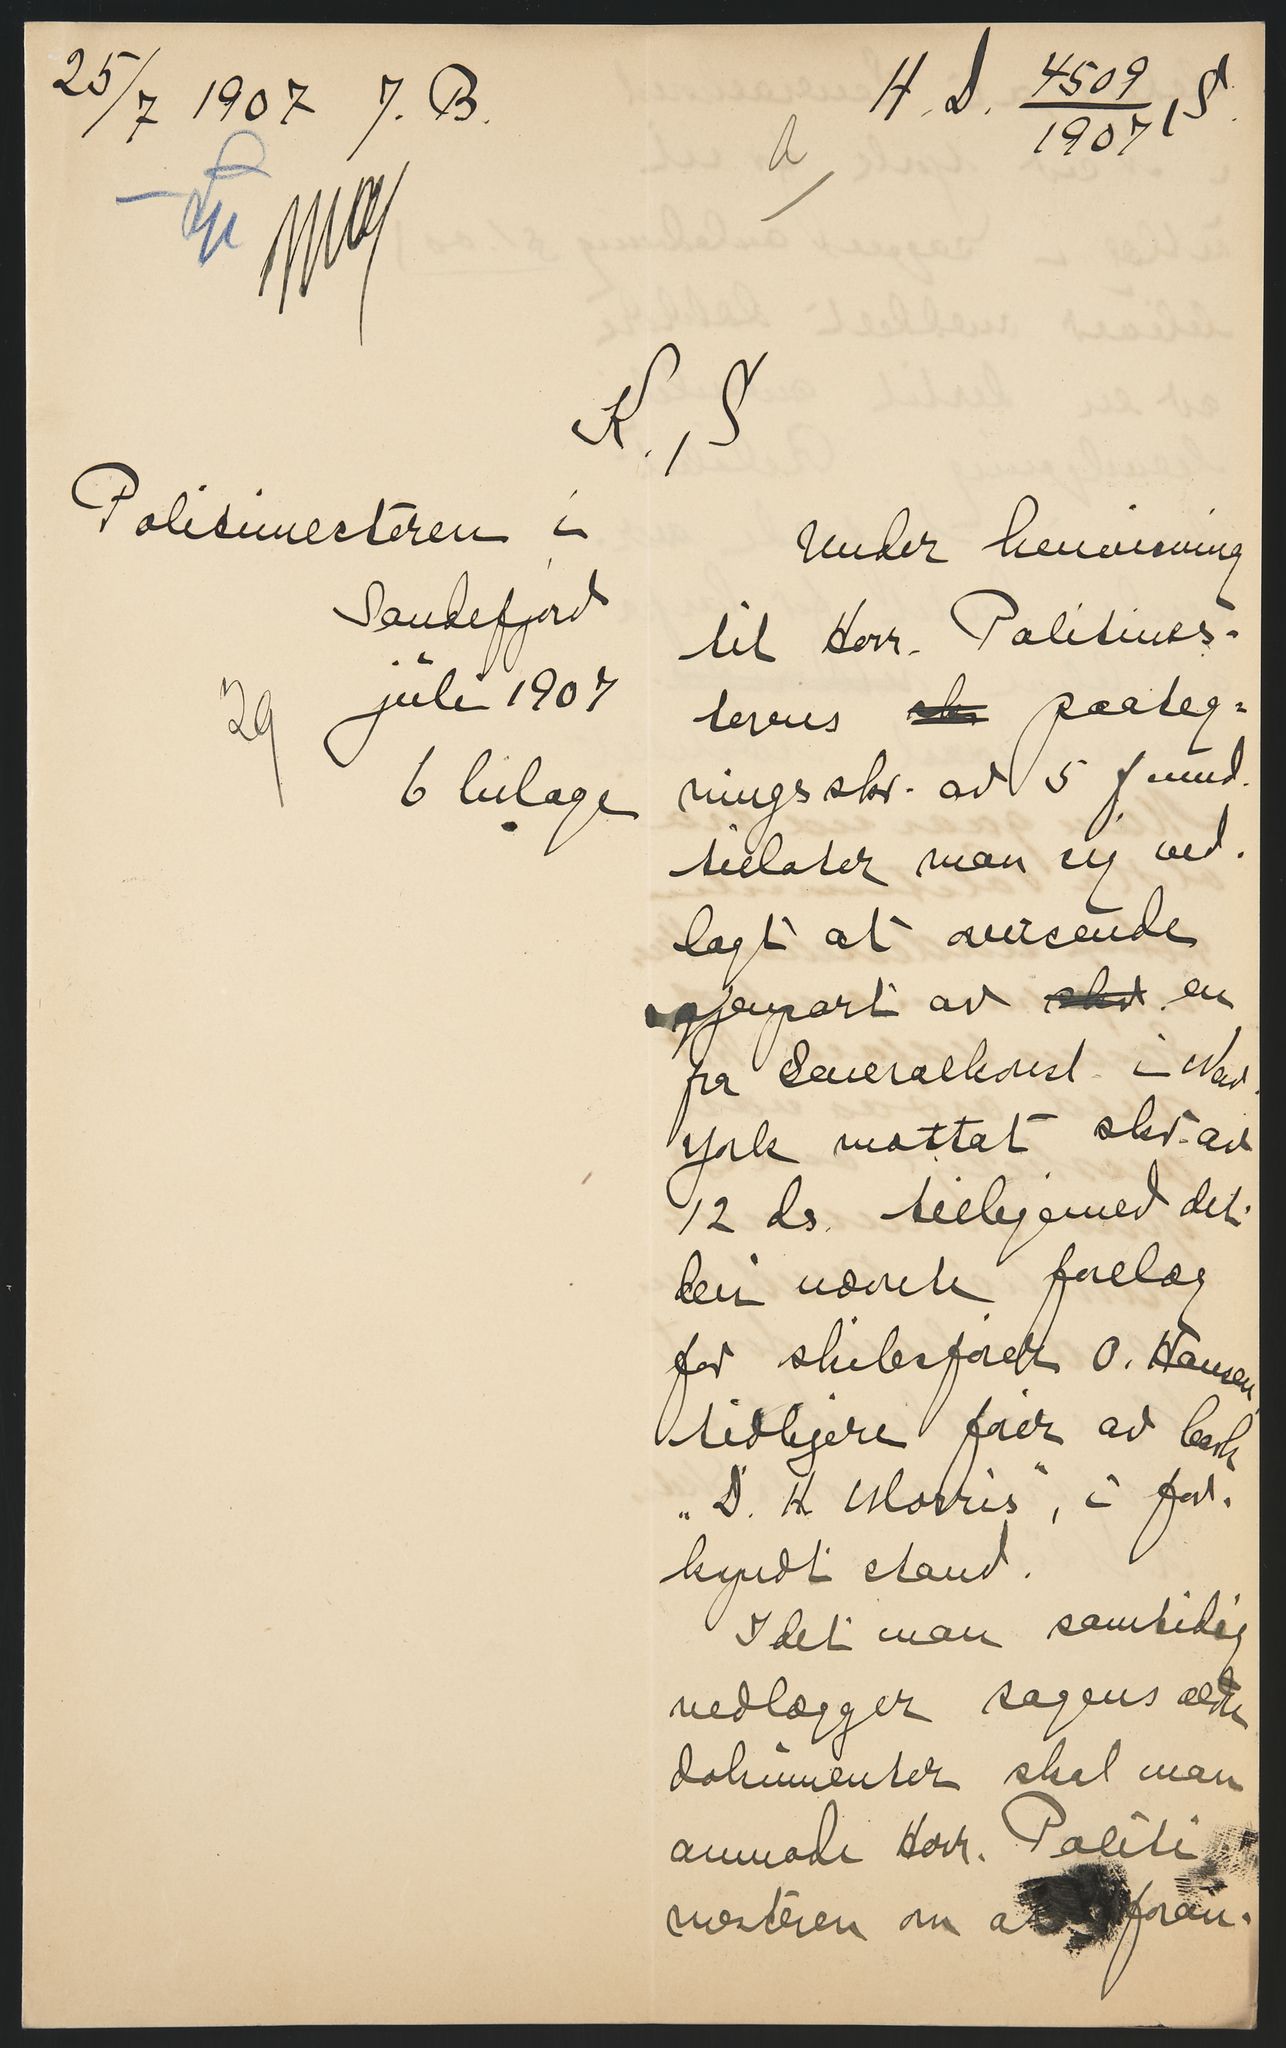 25/7 1907 J. B.
H. D. 4509/1907, S.
K., S
Politimesteren i
Sandefjord
29 juli 1907
6 bilage
Under henvisning
til Herr. Politimes-
terens sk paateg-
ningsskr. av 5 f mnd.
tillater man sig ved-
lagt at oversende
gjenpart av skr. en
fra Generalkonsl. i New
York mottat skr. av
12 ds. tillikemed det
deri nævnte forelæg
for skibsfører O. Hansen,
tidligere fører av bark
"D. H. Morris", i for-
kyndt stand.
Idet man samtidig
vedlægger sagens ældre
dokumenter skal man
anmode Herr. Politi
mesteren om at foran-